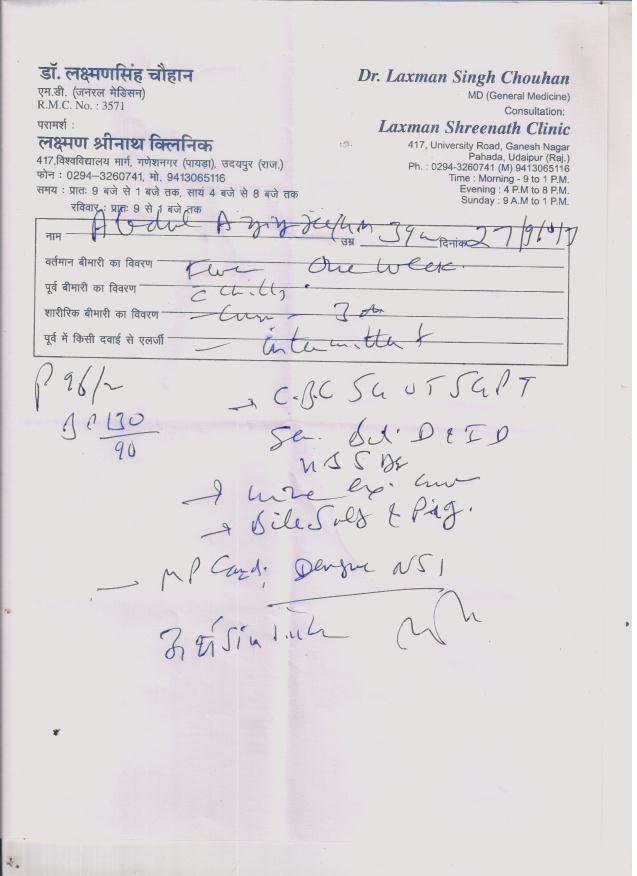 डॉ. लक्ष्मणसिंह चौहान
एम.डी. (जनरल मेडिसन)
R.M.C. No. : 3571
परामर्श :
लक्ष्मण श्रीनाथ क्लिनिक
417,विश्वविद्यालय मार्ग, गणेशनगर (पायड़ा), उदयपुर (राज.)
फोन : 0294-3260741, मो. 9413065116
समय : प्रातः 9 बजे से 1 बजे तक, सायं 4 बजे से 8 बजे तक
रविवार : प्रातः 9 से 1 बजे तक
Dr. Laxman Singh Chouhan
MD (General Medicine)
Consultation:
Laxman Shreenath Clinic
417, University Road, Ganesh Nagar
Pahada, Udaipur (Raj.)
Ph. : 0294-3260741 (M) 9413065116
Time : Morning - 9 to 1 P.M.
Evening : 4 P.M to 8 P.M.
Sunday : 9 A.M to 1 P.M.
नाम Abdul उम्र दिनांक 27/9/
वर्तमान बीमारी का विवरण One Week.
पूर्व बीमारी का विवरण c chills
शारीरिक बीमारी का विवरण
पूर्व में किसी दवाई से एलर्जी intermittent
P 96/
BP 130/90
→ C.B.C SGOT SGPT
D & ID
→
→ Bile Salt & Pig.
MP Card, Dengue NS1